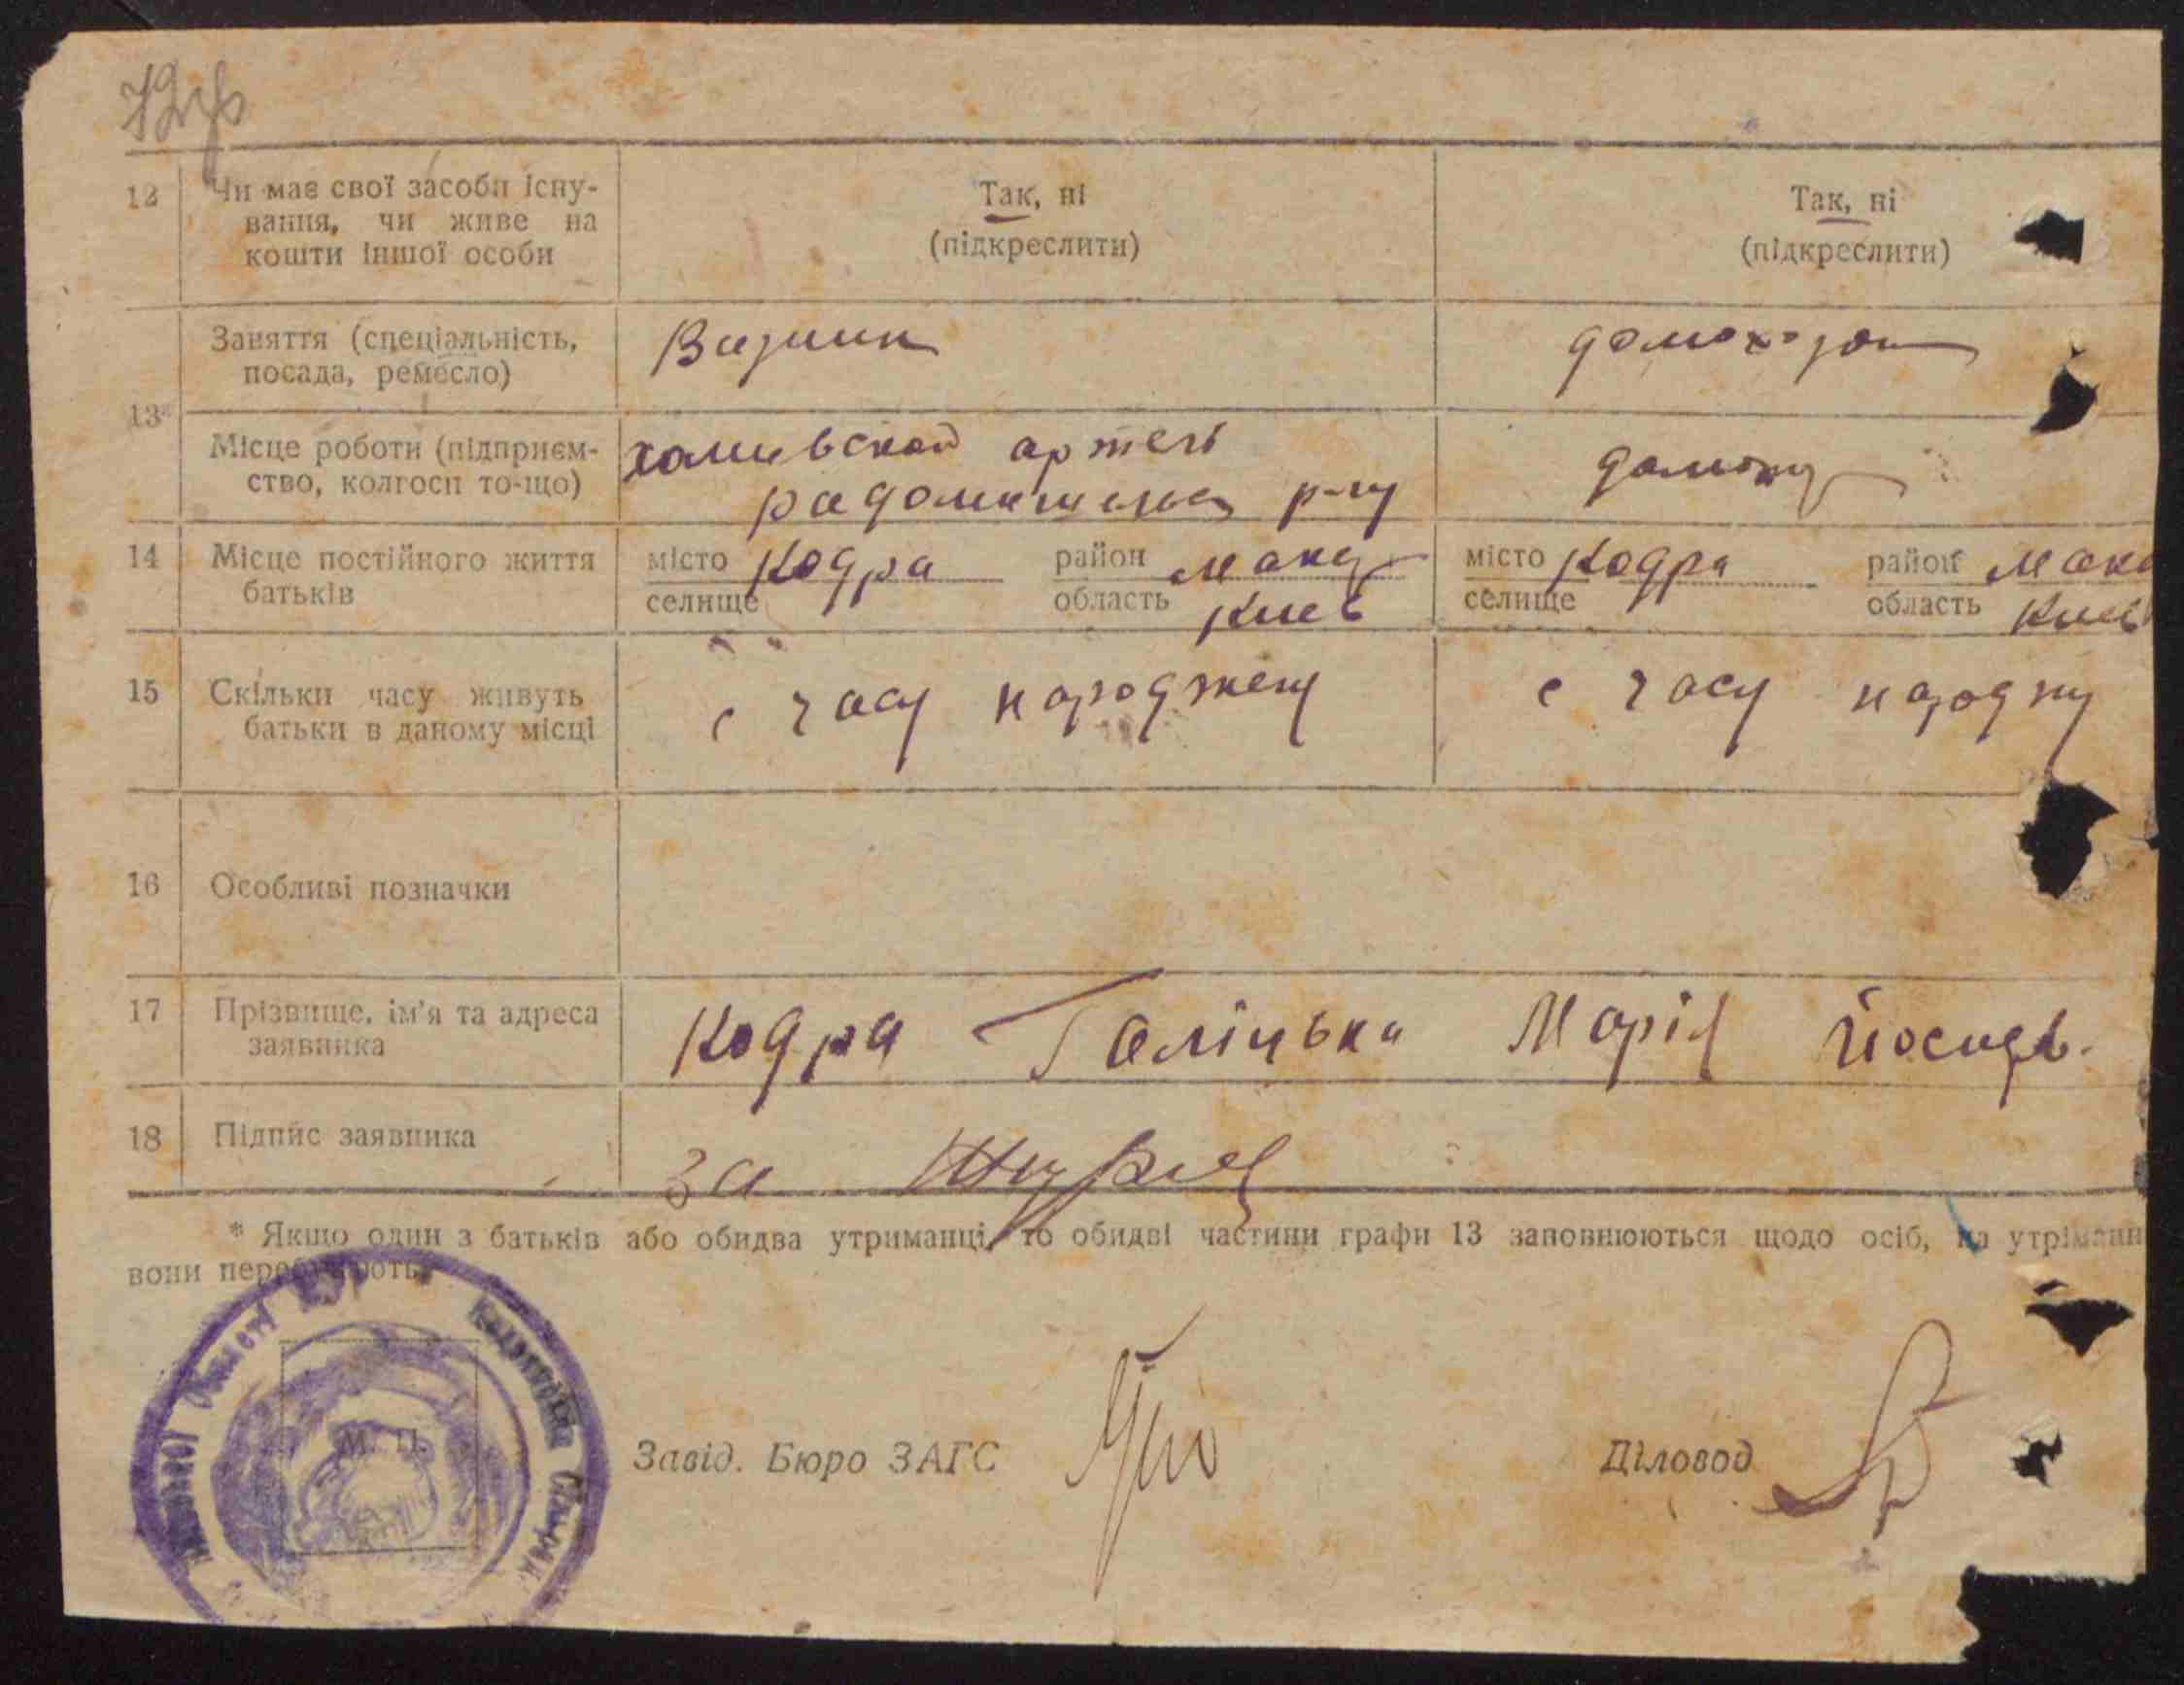 12 Чи має свої засоби існу-
вання, чи живе на
кошти іншої особи
Так, ні
(підкреслити)
Так, ні
(підкреслити)
13*
Заняття (спеціальність,
посада, ремесло)
Візник
домохозя
Місце роботи (підприєм-
ство, колгосп то-що)
артелі
р-ну
14 Місце постійного життя
батьків
місто Кодра район Мака
селище область Киев
місто Кодра район Мака
селище область Киев
15 Скільки часу живуть
батьки в даному місці
с часу народжен
с часу народж
16 Особливі позначки
17 Прізвище, ім'я та адреса
заявника
Кодра Галіцька Марія Йосипів.
18 Підпис заявника
За
* Якщо один з батьків або обидва утриманці, то обидві частини графи 13 заповнюються щодо осіб, на утріманн
вони перебувають
М. П.
Завід. Бюро ЗАГС
Діловод